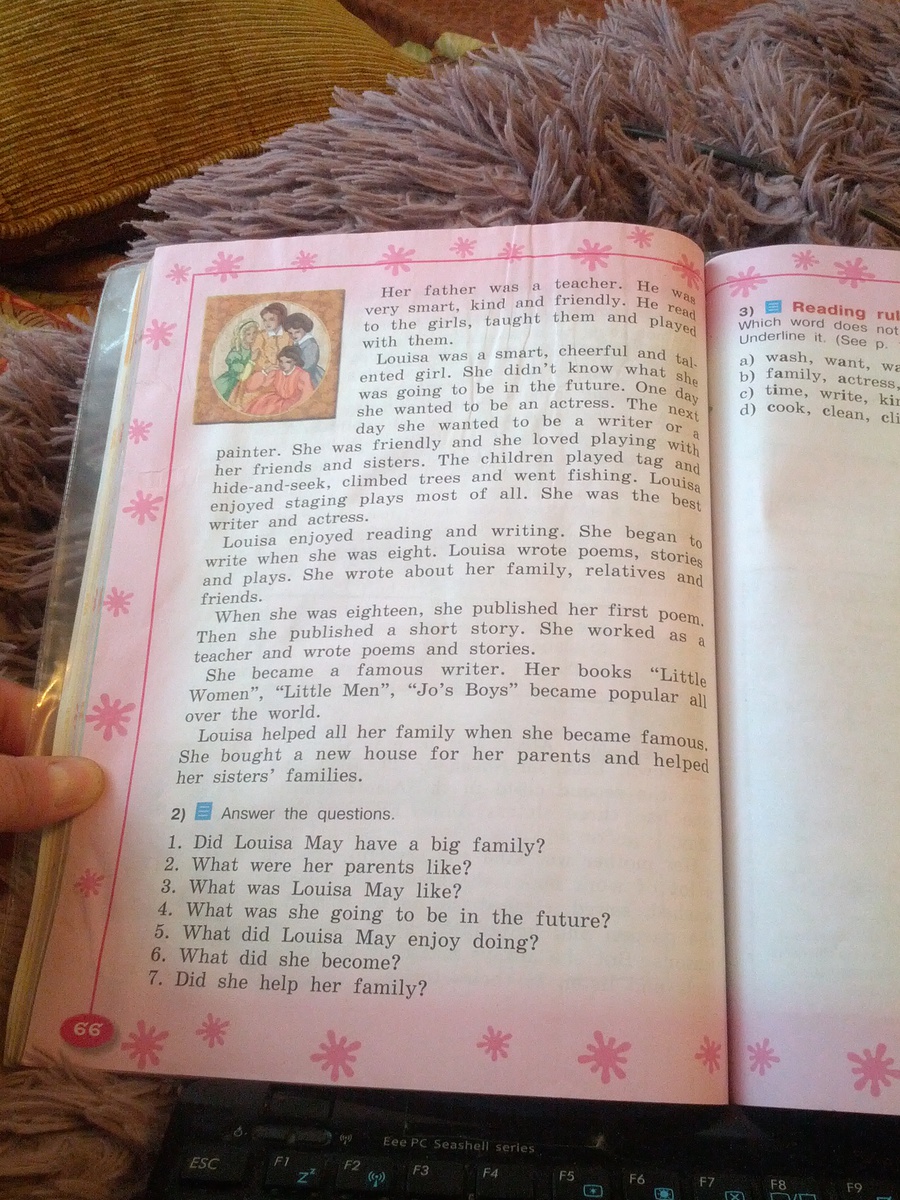 Her father was a teacher. He was
very smart, kind and friendly. He read
to the girls, taught them and played
with them.
Louisa was a smart, cheerful and tal-
ented girl. She didn't know what she
was going to be in the future. One day
she wanted to be an actress. The next
day she wanted to be a writer or a
painter. She was friendly and she loved playing with
her friends and sisters. The children played tag and
hide-and-seek, climbed trees and went fishing. Louisa
enjoyed staging plays most of all. She was the best
writer and actress.
Louisa enjoyed reading and writing. She began to
write when she was eight. Louisa wrote poems, stories
and plays. She wrote about her family, relatives and
friends.
When she was eighteen, she published her first poem.
Then she published a short story. She worked as a
teacher and wrote poems and stories.
She became a famous writer. Her books "Little
Women", "Little Men", "Jo's Boys" became popular all
over the world.
Louisa helped all her family when she became famous.
She bought a new house for her parents and helped
her sisters' families.
2) Answer the questions.
1. Did Louisa May have a big family?
2. What were her parents like?
3. What was Louisa May like?
4. What was she going to be in the future?
5. What did Louisa May enjoy doing?
6. What did she become?
7. Did she help her family?
66
3) Reading rul
Which word does not
Underline it. (See p.
a) wash, want, wa
b) family, actress,
c) time, write, kin
d) cook, clean, cli
Eee PC Seashell series
ESC F1 F2 F3 F4 F5 F6 F7 F8 F9